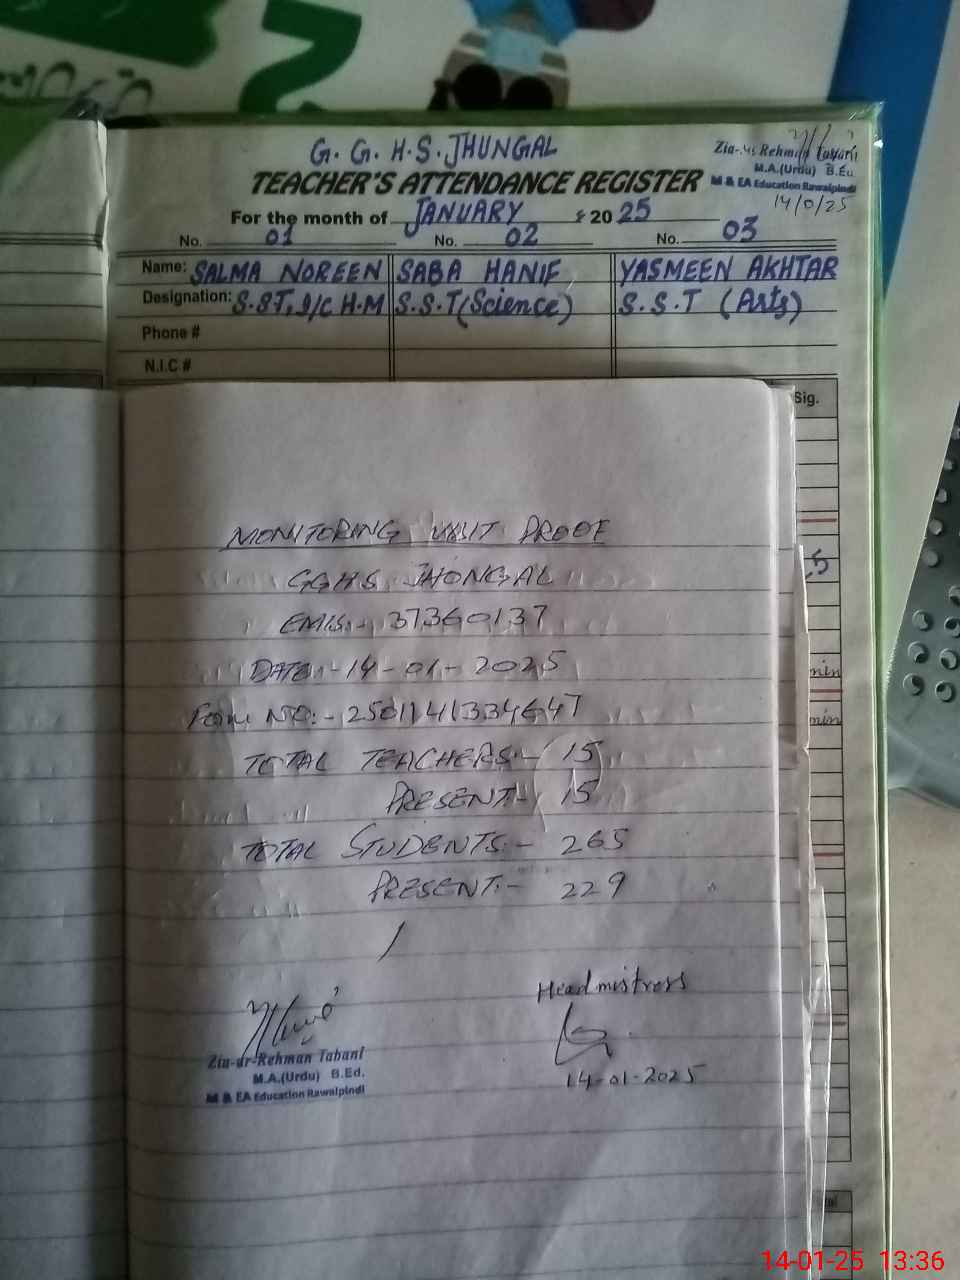 G. G. H. S. JHUNGAL
TEACHER'S ATTENDANCE REGISTER
Zia-ur-Rehman Tabani
M.A.(Urdu) B.Ed.
M & EA Education Rawalpindi
14/0/25
For the month of JANUARY 2025
No. 01 No. 02 No. 03
Name: SALMA NOREEN SABA HANIF YASMEEN AKHTAR
Designation: S.S.T, I/C H.M S.S.T (Science) S.S.T (Arts)
Phone #
N.I.C #
Sig.
MONITORING VISIT PROOF
GGHS JHONGAL
EMIS:- 37360137
DATE:-14-01-2025
Form NO:- 2501141334647
TOTAL TEACHERS:- 15
PRESENT:- 15
TOTAL STUDENTS:- 265
PRESENT:- 229
min
min
Headmistress
14-01-2025
Zia-ur-Rehman Tabani
M.A.(Urdu) B.Ed.
M & EA Education Rawalpindi
14-01-25 13:36